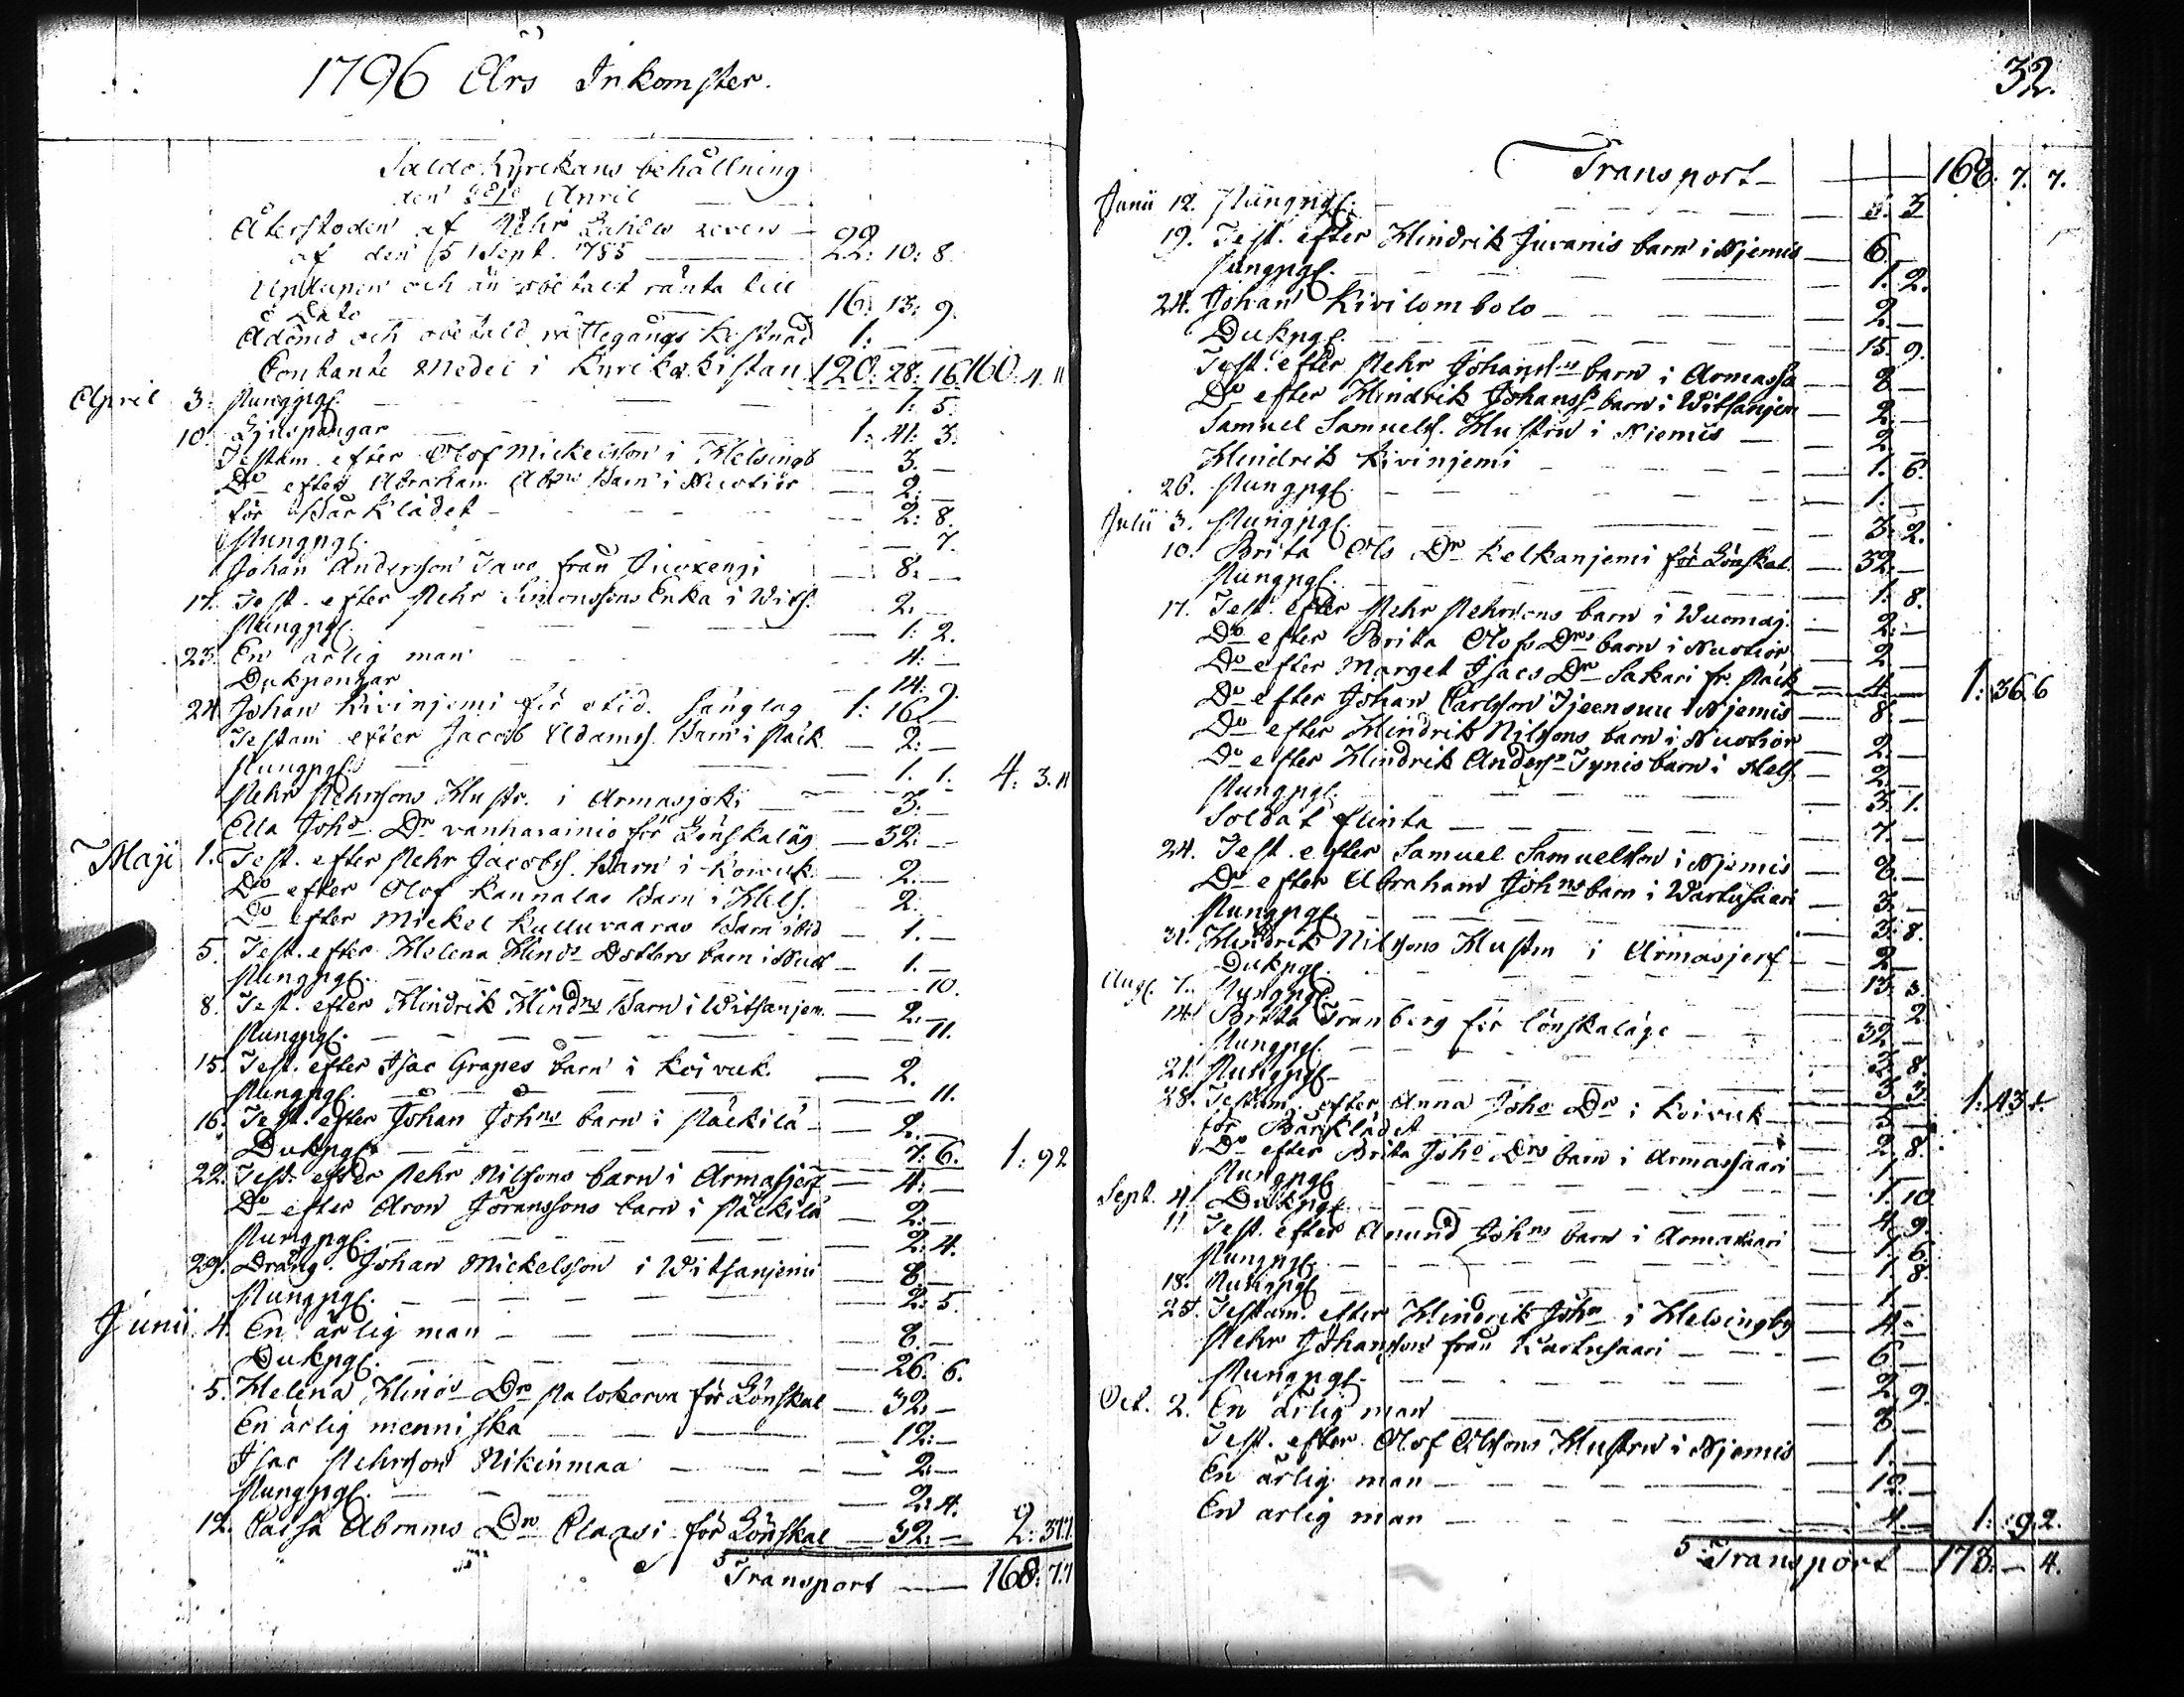 1796 Års Inkomster.
Saldo Kyrckans behållning
den April
Återstoden af Pehr Lahis revers
af den 15 Sept. 1755 — 22: 10: 8.
Upplupen och än obetalt ränta till
dato 16: 13: 9.
Adömd och obetald rättegångs kostnad 1: —
Contante Medel i Kyrckokistan 120: 28: 16 160: 4. 11
April 3. Pungpgr. — 1: 5.
10. Ljuspängar — 1: 41: 3.
Testam. efter Olof Mickelsson i Helsingb — 3. —
Do efter Abraham Abrs Barn i Nuotior — 2: —
för Bårklädet — 2: 8.
Pungpgr. — 7.
Johan Andersson Tavo från Juoxengi — 8: —
17. Test. efter Pehr Simonssons Enka i Wits. 2. —
Pungpgr. — 1: 2.
23. En ärlig man — 4: —
Dukpengar — 14: 9.
24. Johan Kivinjemi för otid. sänglag 1: 16. —
Testam. efter Jacob Adamss. Barn i Päck. — 2: —
Pungpgr. — 1. 1. 4: 3. 11
Pehr Pehrssons Hustr. i Armasjoki — 3. —
Ella Johs Dr vanhavainio för Lönskaläg — 32: —
Maji 1. Test. efter Pehr Jacobss. Barn i Koivuk. — 2. —
Do efter Olof Kannalas Barn i Hels. — 2. —
Do efter Mickel Kulluvaaras Barn ibid — 1. —
5. Test. efter Helena Hinds Dotters barn i Nuot — 1. —
Pungpgr. — 10.
8. Test. efter Hindrik Hindrs Barn i Witsanjem. — 2. —
Pungpgr. — 11.
15. Test. efter Isac Grapes barn i Koivuk. — 2.
Pungpgr. — 11.
16. Test. efter Johan Johns barn i Päckilä — 2. —
Dukpgr. — 7: 6. 1: 9 2
22. Test. efter Pehr Nilssons barn i Armasjerf — 4: —
Do efter Aron Joranssons barn i Päckilä — 2: —
Pungpgr. — 2: 4.
29. Dräng. Johan Mickelsson i Witsanjemi — 8. —
Pungpgr. — 2: 5.
Junii 4. En ärlig man — 8. —
Dukpgr. — 26: 6.
5. Helena Hinds Dr Palokorva för Lönskal — 32: —
En ärlig menniska — 12: —
Isac Pehrsson Nikinmaa — 2: —
Pungpgr. — 2: 4.
12. Caisa Abrams Dr Claavi för Lönskal — 32: — 2: 31:
Transport — 168: 7. 7
32.
Transport — 168: 7. 7.
Junii 12. Pungpgr. — 3
19. Test. efter Hindrik Juvanis barn i Njemis — 6. —
Pungpgr. — 1. 2.
24. Johan Kivilombolo — 2. —
Dukpgr. — 15. 9.
Test. efter Pehr Johanssns barn i Armassa — 8 —
Do efter Hindrik Johanss. barn i Witsanjem — 2. —
Samuel Samuels. Hustru i Niemis — 2 —
Hindrik Kivinjemi — 1. 6.
26. Pungpgr. — 1. —
Julii 3. Pungpgr. — 3. 2.
10. Brita Ols Dr Kelkanjemi för Lönskal. — 32. —
Pungpgr. — 1. 8.
17. Test. efter Pehr Pehrssons barn i Wuomaj. — 2. —
Do efter Brita Olofs Drs barn i Nuotior — 2. —
Do efter Marget Isacs Dr Sakari fr. Päck — 4. — 1: 36 6
Do efter Johan Carlsson Tjeensuu i Njemis — 8. —
Do efter Hindrik Nilssons barn i Nuotior — 2. —
Do efter Hindrik Anderss Tynis barn i Hels — 2. —
Pungpgr. — 3. 1.
Soldat Flinta — 7. —
24. Test. efter Samuel Samuelsson i Njemis — 8. —
Do efter Abraham Johns barn i Wartusaari — 3. —
Pungpgr. — 3. 8.
31. Hindrik Nilssons Hustru i Armasjerf — 2 —
Dukpgr. — 13. 3.
Aug. 7. Pungpgr. — 2
14. Brita Tranberg för lönskaläge — 32. —
Pungpgr. — 8.
21. Pungpgr. — 3. 3.
28. Testam. efter Anna Johs Dr i Koivuk — 3. — 1: 43
för Bårklädet — 2. 8.
Do efter Brita Johs Drs barn i Armassaari — 1 —
Pungpgr. — 1. 10
Sept. 4. Dukpgr. — 4. 9.
11. Test. efter Anund Johns barn i Armassaari — 1. 6.
Pungpgr. — 1. 8.
18. Pungpgr. — 1. —
25. Testam. efter Hindrik Johs i Helsingby — 4. —
Pehr Johansson från Kartusaari — 6. —
Pungpgr. — 2. 9.
Oct. 2. En ärlig man — 8 —
Test. efter Olof Olssons Hustru i Njemis — 1. —
En ärlig man — 12. —
En ärlig man — 4. — 1: 9. 2.
Transport — 173: — 4.